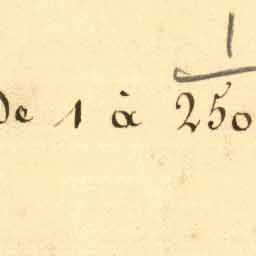 1
de 1 à 250